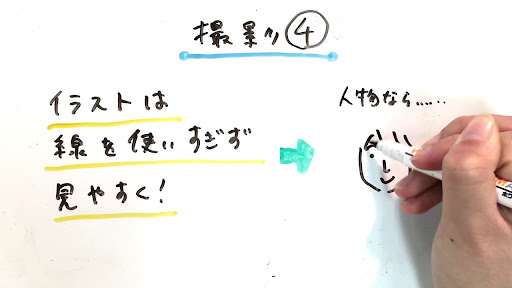 撮影④
イラストは
線を使いすぎず
見やすく！
人物なら……